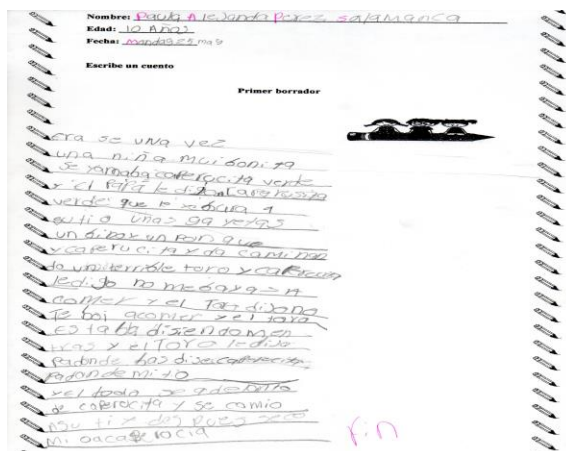 Nombre: Paula Alejandra Perez salamanca
Edad: 10 Años
Fecha: mag
Escribe un cuento
Primer borrador
era se una vez
una niña mui boni ta
se yamaba caperucita verde
y el papa le dijo caperusita
verde que le
su tio unas ga yetas
un y un pan que
y caperuci ta y ba caminan
do un terrible toro y caperucita
le dijo no me baya a
comer y el Toro dijo no
Te boi acomer y el toro
estaba disiendo men
tiras y el Toro le dijo
padonde bas dise caperucita
padonde mi tio
y el todo se adelanto
de caperocita y se comio
asu ti y des pues se co
mi oacaperocia
Fin